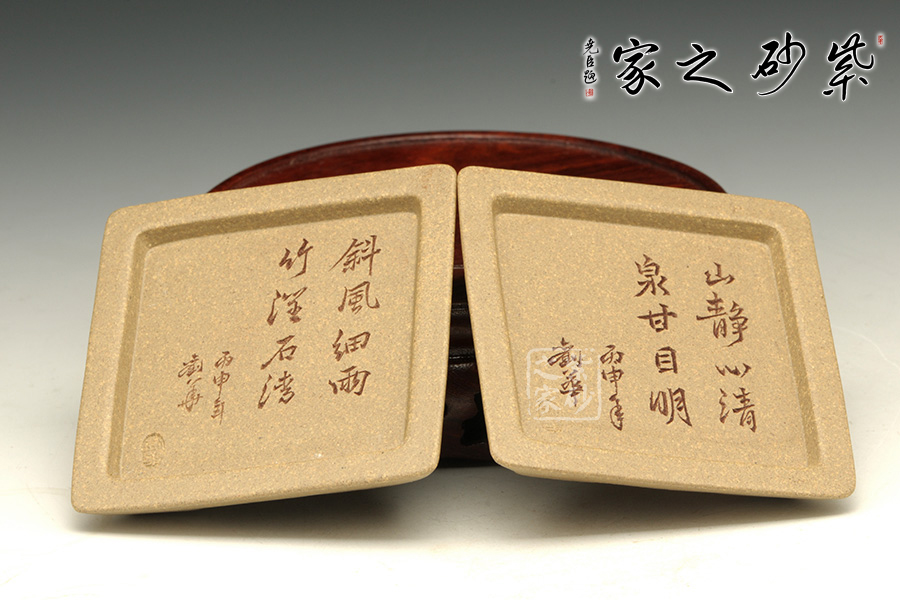 紫砂之家
斜風細雨
竹深石清
丙申年
劉華
山静心清
泉甘目明
丙申年
劉華